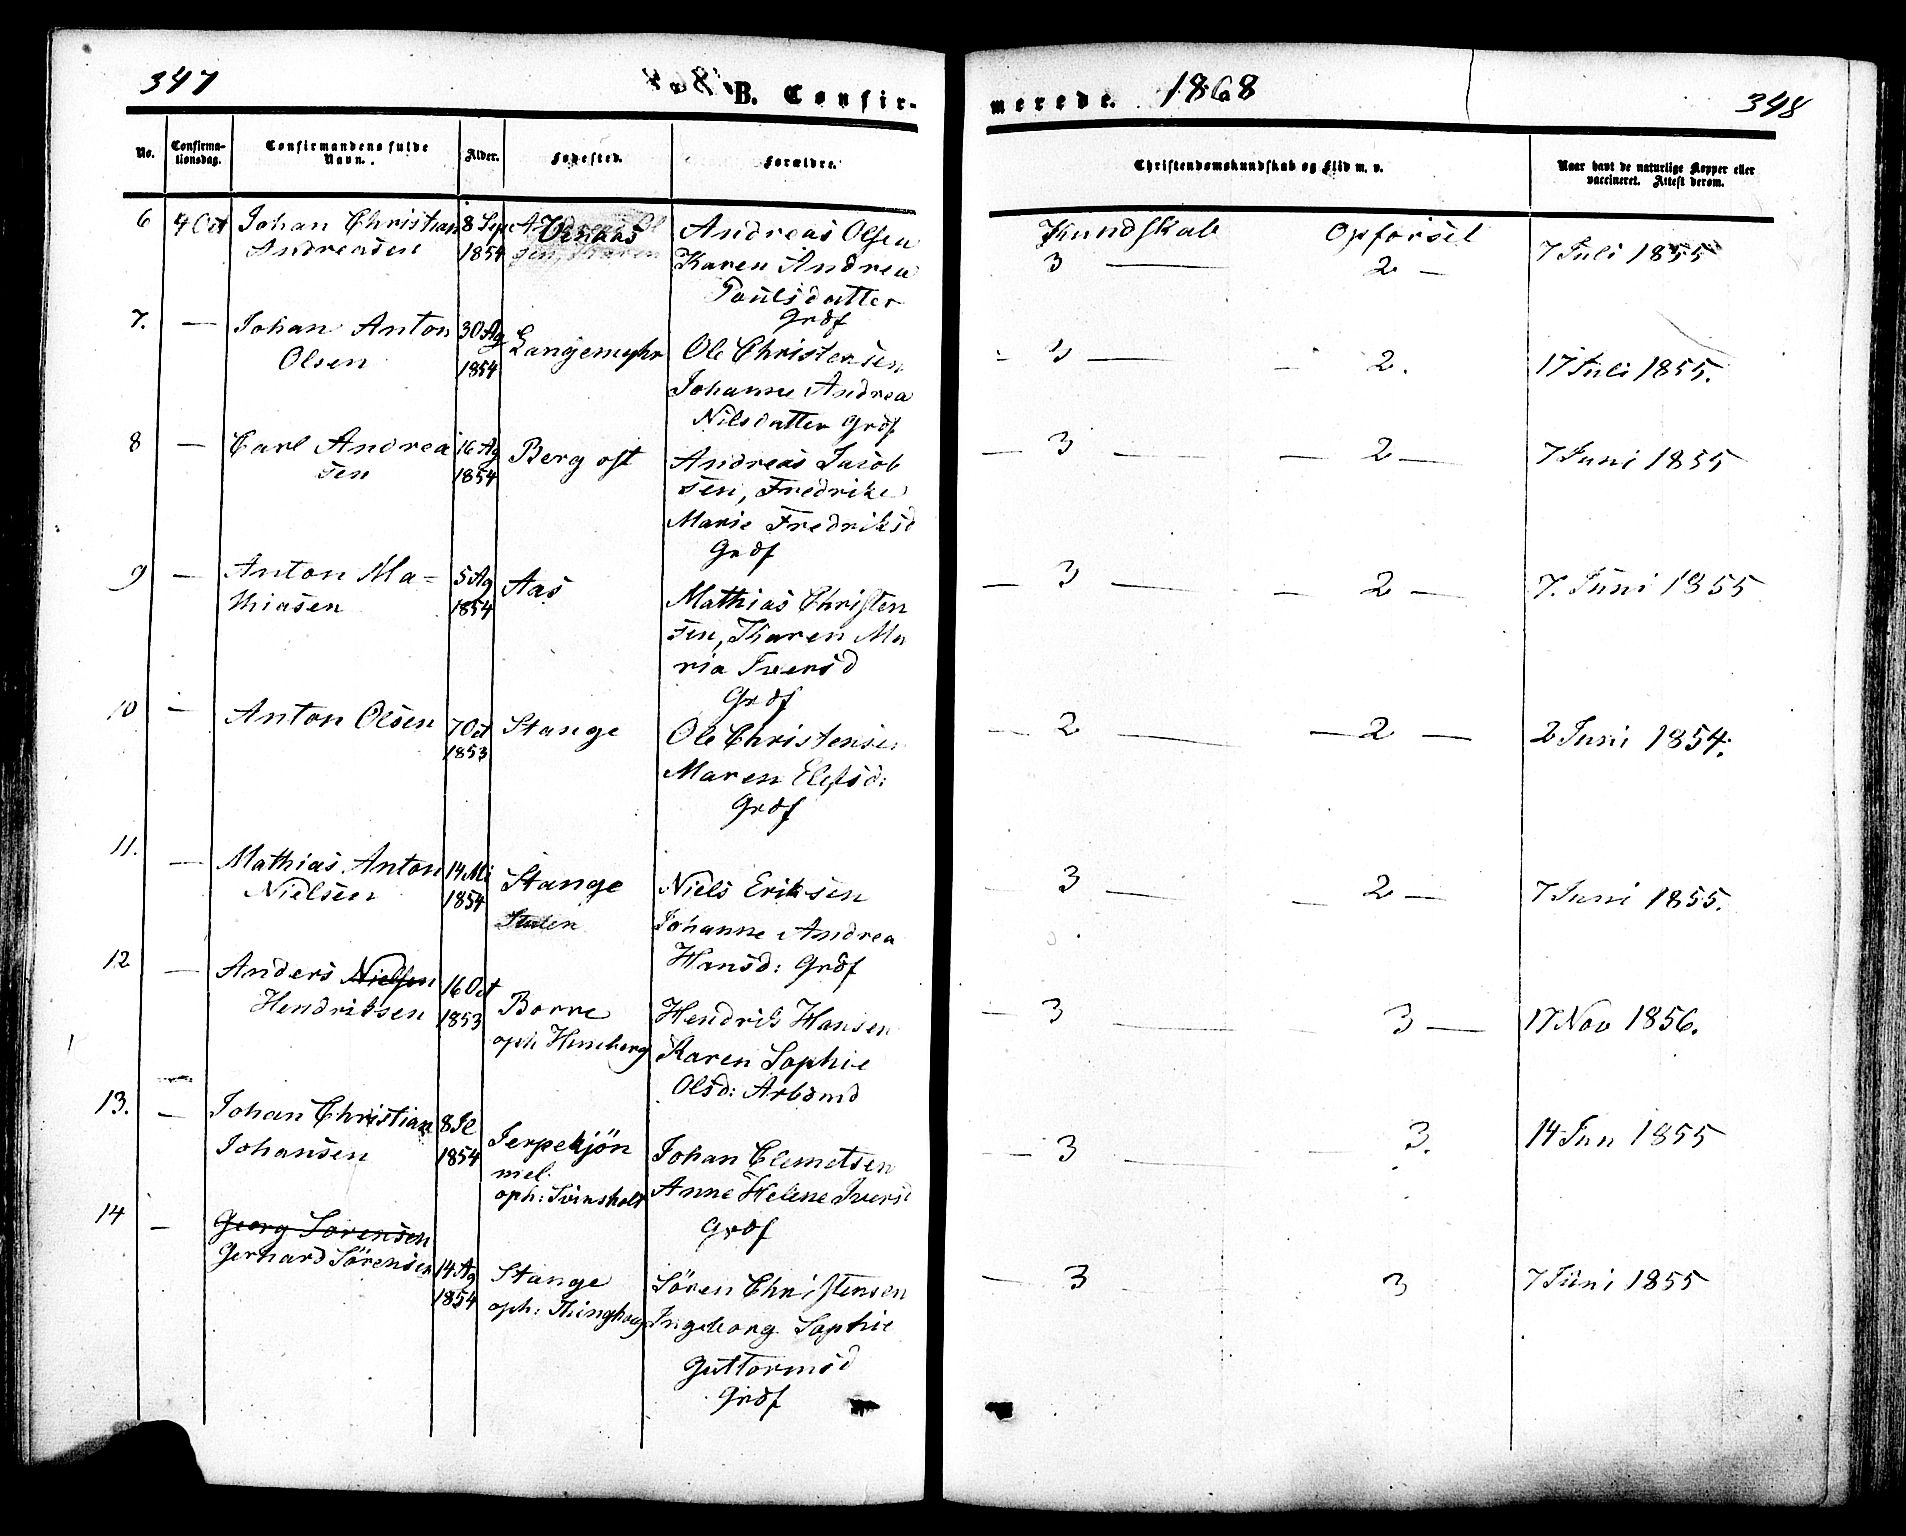 347
B. Confir-
merede.
1868
348
No.
Confirma-
tionsdag.
Confirmandens fulde
Navn.
Alder.
Fødested.
Forældre.
Christendomskundskab og Flid m. v.
Naar havt de naturlige Kopper eller
vaccineret. Attest derom.
6
4 Oct
Johan Christian
Andreasen
8 Sep
1854
Andreas Olsen
Karen Andrea
Poulsdatter
Grdf
Kundskab
3
Opførsel
2
7 Juli 1855
7.
—
Johan Anton
Olsen
30 Ag
1854
Langemyhr
Ole Christensen
Johanne Andrea
Nilsdatter Grdf
3
2.
17 Juli 1855.
8
—
Carl Andrea
sen
16 Ag
1854
Berg øst
Andreas Jacob
sen, Fredrike
Marie Fredriksd
Grdf
3
2
7 Juni 1855
9
—
Anton Ma=
thiasen
5 Ag
1854
Aas
Mathias Christen
sen, Karen Ma
ria Iversd
Grdf
3
2
7. Juni 1855
10
—
Anton Olsen
7 Oct
1853
Stange
Ole Christensen
Maren
Grdf
2
2
2 Juni 1854.
11.
—
Mathias Anton
Nielsen
14 Mi
1854
Stange
Niels Eriksen
Johanne Andrea
Hansd: Grdf
3
2
7 Juni 1855.
12
—
Anders Nielsen
Hendriksen
16 Oct
1853
Borre
oph:
Hendrik Hansen
Karen Sophie
Olsd: Arbdmd
3
3
17 Nov 1856.
13.
—
Johan Christian
Johansen
8
1854
Jerpekjön
mel.
oph: Svinsholt
Johan Clemetsen
Anne Helene Iversd
Grdf
3
3.
14 Jun 1855
14
—
Georg Sørensen
Gerhard Sörensen
14 Ag
1854
Stange
oph: Thinghoug
Sören Christensen
Ingeborg Sophie
Guttormsd
Grdf
3
3
7 Juni 1855